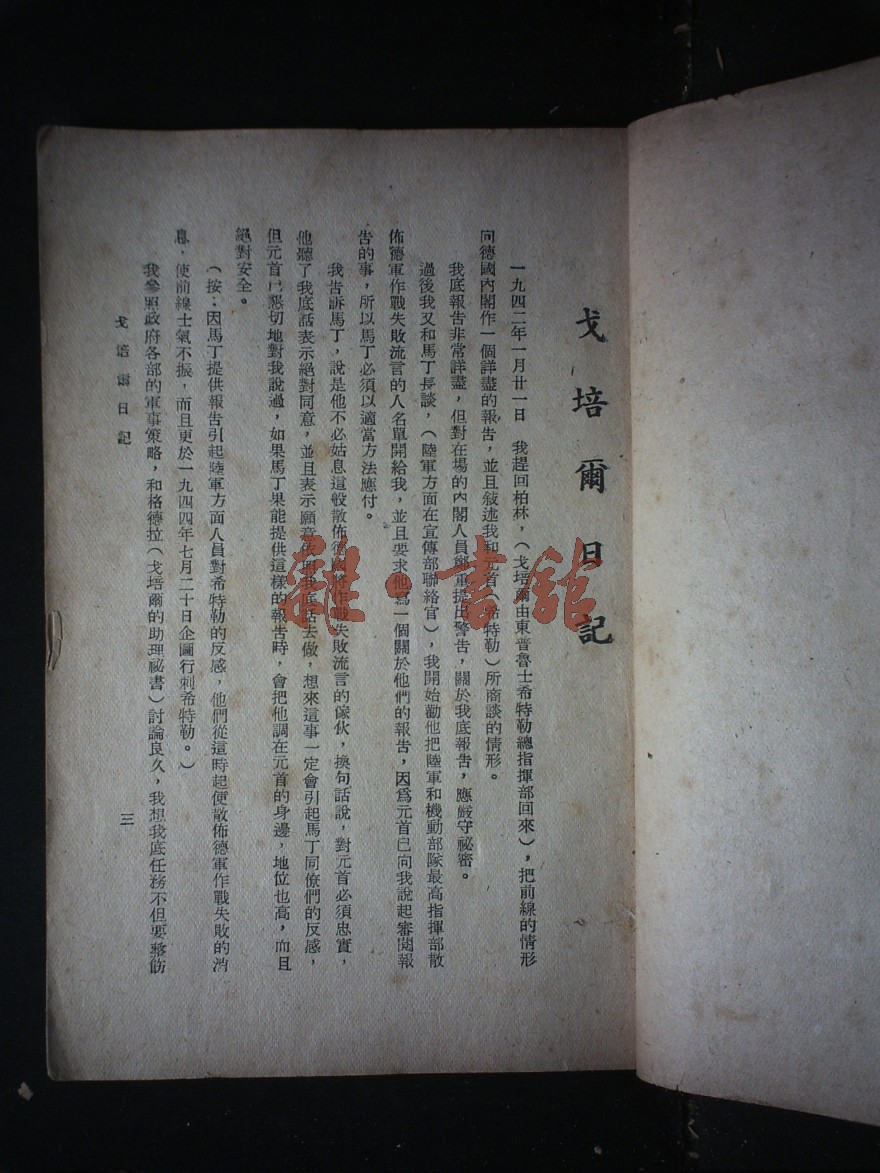 戈培爾日記
一九四二年一月廿一日　我趕回柏林，（戈培爾由東普魯士希特勒總指揮部回來），把前線的情形
向德國內閣作一個詳盡的報告，並且敍述我和元首（希特勒）所商談的情形。
我底報告非常詳盡，但對在場的內閣人員鄭重提出警告，關於我底報告，應嚴守祕密。
過後我又和馬丁長談，（陸軍方面在宣傳部聯絡官），我開始勸他把陸軍和機動部隊最高指揮部散
佈德軍作戰失敗流言的人名單開給我，並且要求他寫一個關於他們的報告，因爲元首已向我說起審閱報
告的事，所以馬丁必須以適當方法應付。
我告訴馬丁，說是他不必姑息這般散佈德國將作戰失敗流言的傢伙，換句話說，對元首必須忠實，
他聽了我底話表示絕對同意，並且表示願意依照我底話去做，想來這事一定會引起馬丁同僚們的反感，
但元首已懇切地對我說過，如果馬丁果能提供這樣的報告時，會把他調在元首的身邊，地位也高，而且
絕對安全。
（按：因馬丁提供報告引起陸軍方面人員對希特勒的反感，他們從這時起便散佈德軍作戰失敗的消
息，使前線士氣不振，而且更於一九四四年七月二十日企圖行刺希特勒。）
我參照政府各部的軍事策略，和格德拉（戈培爾的助理祕書）討論良久，我想我底任務不但要整飭
戈培爾日記
三
雜·書館